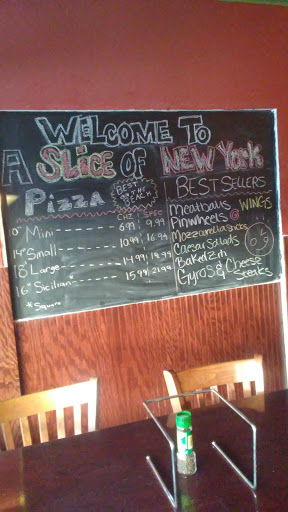 WELCOME TO
A SLiCE OF NEW YORK
PiZZA
BEST
BY THE
BEACH
CHZ SPEC
10" Mini 6.99 9.99
14" Small 10.99 16.99
18" Large 14.99 18.99
16" Sicilian 15.99 21.99
*Square
BEST SELLERS
Meatballs
WiNGS
Pinwheels @
Mozzarella Sticks
Caesar Salads
Baked Ziti
Gyros & Cheese
Steaks